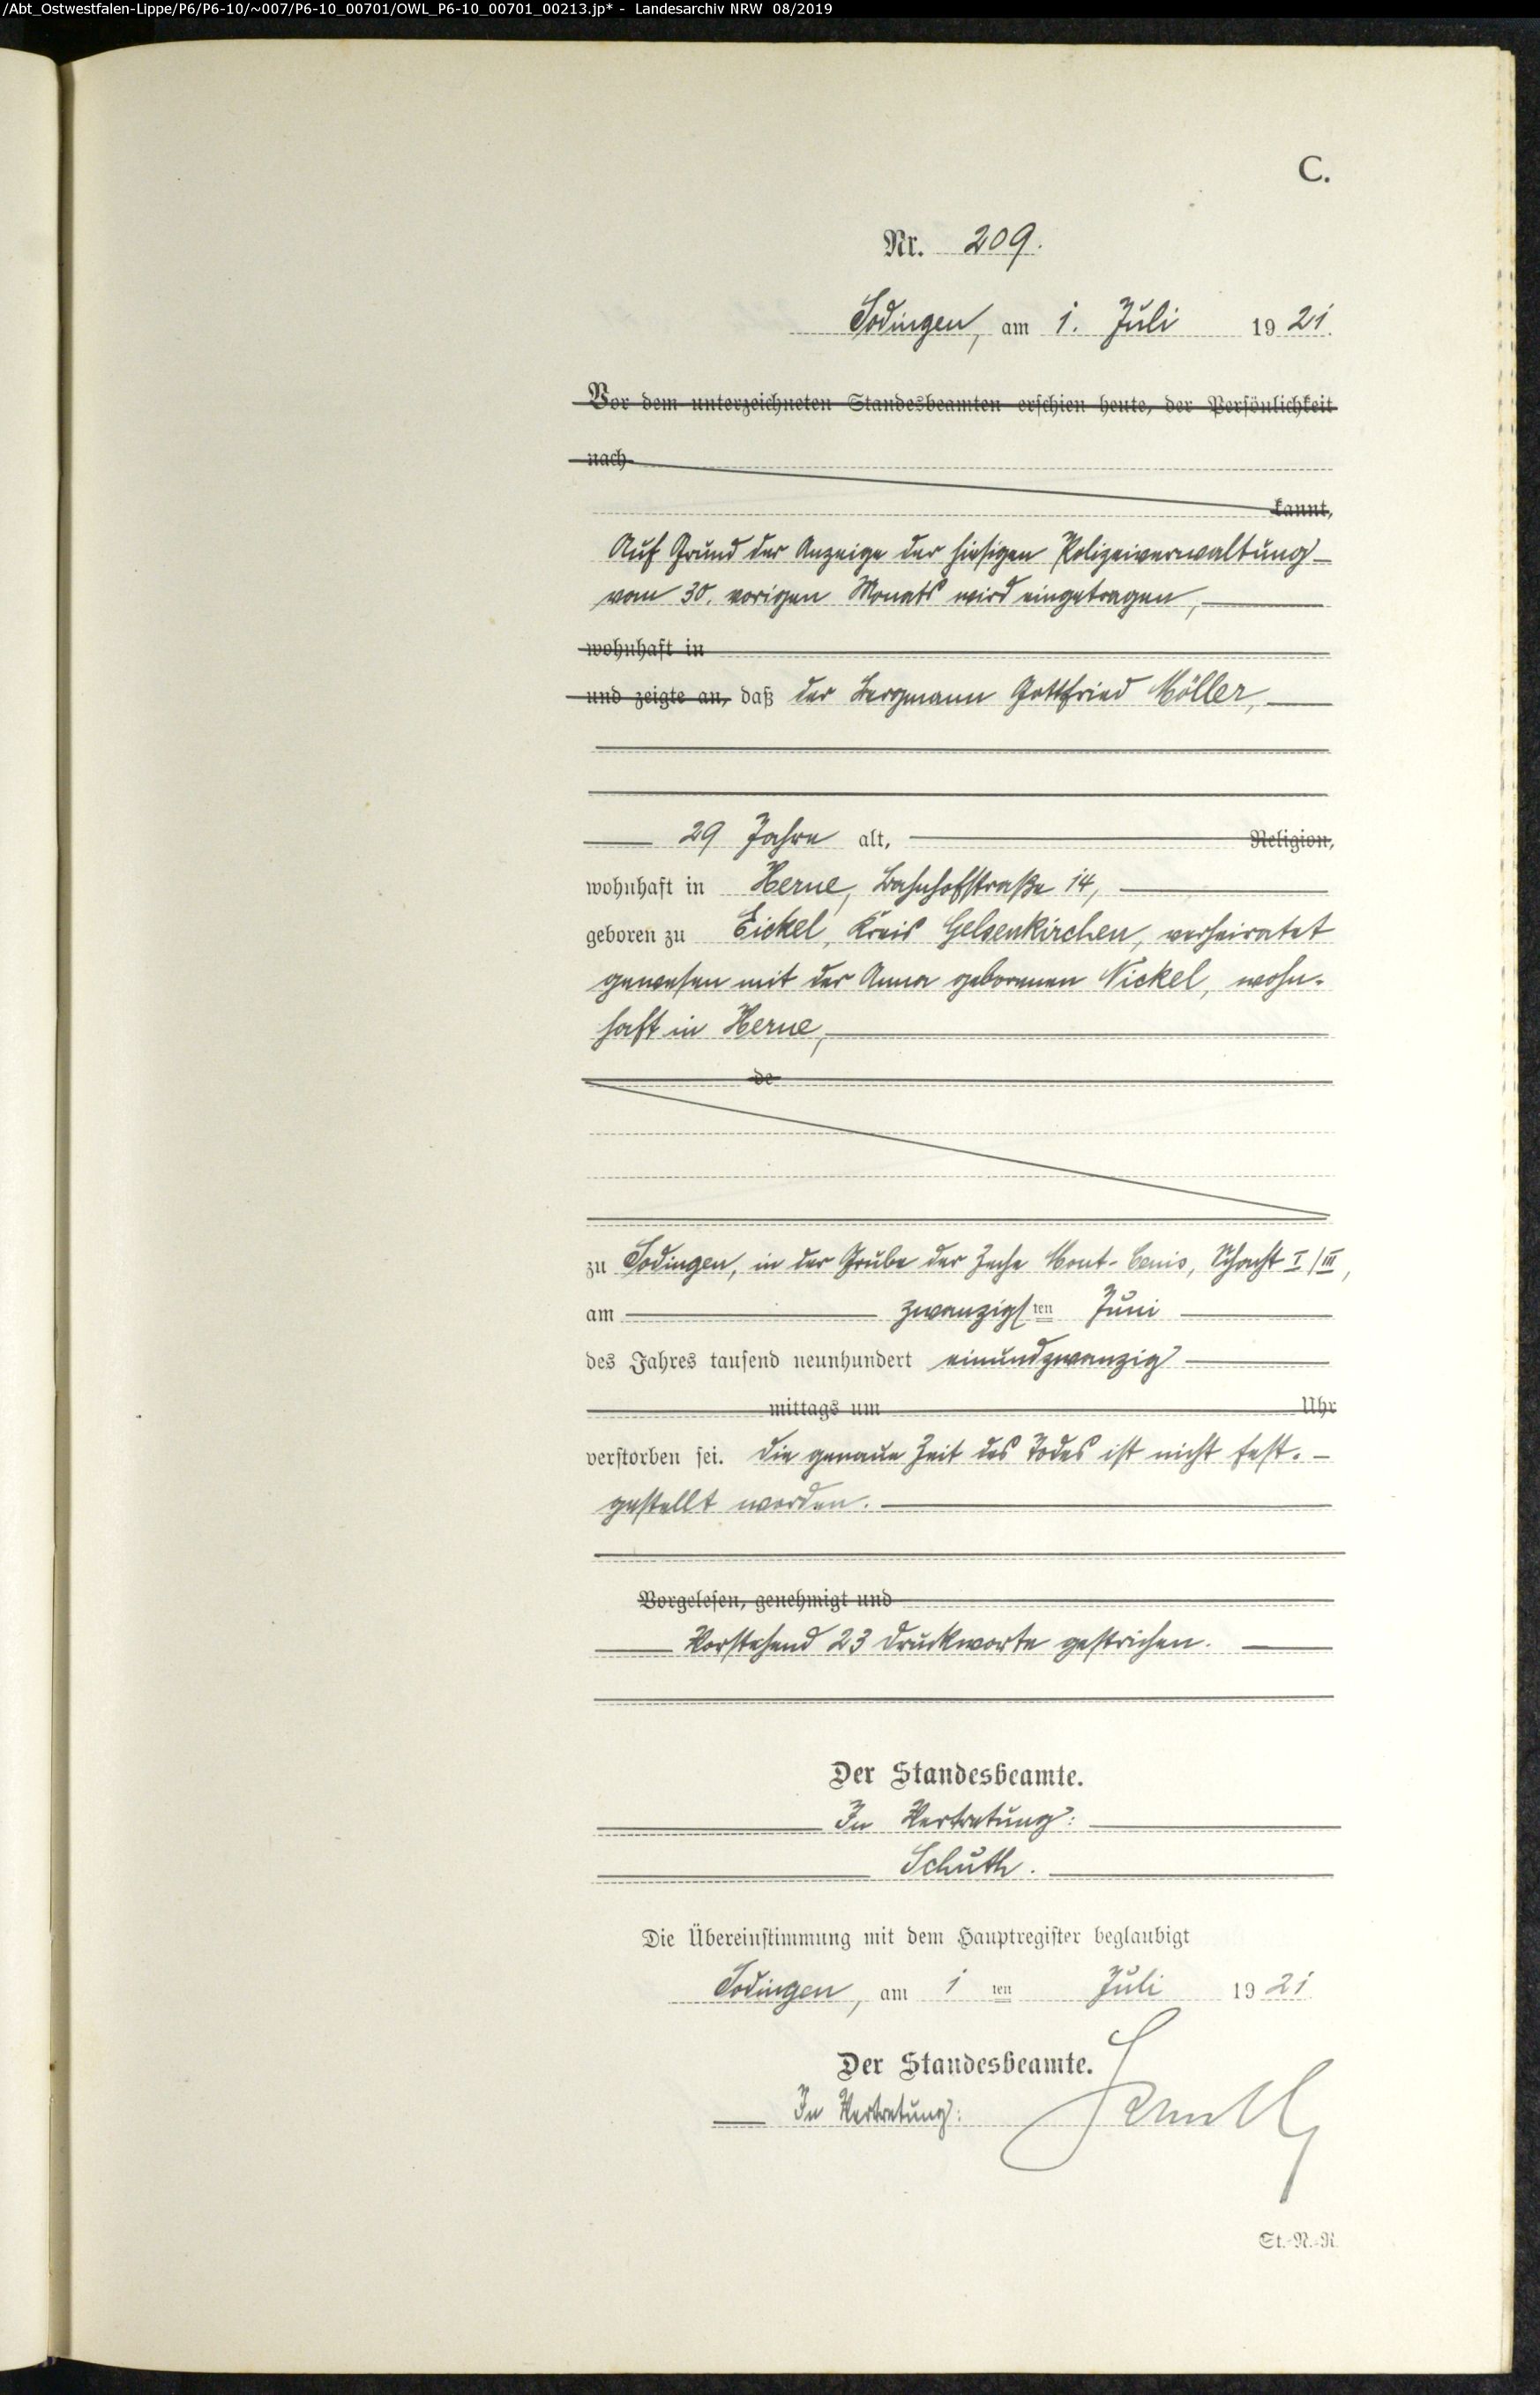 /Abt_Ostwestfalen-Lippe/P6/P6-10/~007/P6-10_00701/OWL_P6-10_00701_00213.jp* - Landesarchiv NRW 08/2019
C.
Nr. 209.
Sodingen, am 1. Juli 1921.
Vor dem unterzeichneten Standesbeamten erschien heute, der Persönlichkeit
nach
kannt,
Auf Grund der Anzeige der hiesigen Polizeiverwaltung
vom 30. vorigen Monats wird eingetragen,
wohnhaft in
und zeigte an, daß der Bergmann Gottfried Möller,
29 Jahre alt, Religion,
wohnhaft in Herne, Bahnhofstraße 14,
geboren zu Eickel, Kreis Gelsenkirchen, verheiratet
gewesen mit der Anna geborenen Nickel, wohn-
haft in Herne,
de
zu Sodingen, in der Grube der Zeche Mont-Cenis, Schacht I/III,
am zwanzigsten Juni
des Jahres tausend neunhundert einundzwanzig
mittags um Uhr
verstorben sei. Die genaue Zeit des Todes ist nicht fest-
gestellt worden.
Vorgelesen, genehmigt und
Vorstehend 23 Druckworte gestrichen.
Der Standesbeamte.
In Vertretung:
Schuth.
Die Übereinstimmung mit dem Hauptregister beglaubigt
Sodingen, am 1 ten Juli 1921
Der Standesbeamte.
In Vertretung: Schuth
St.-N.-R.